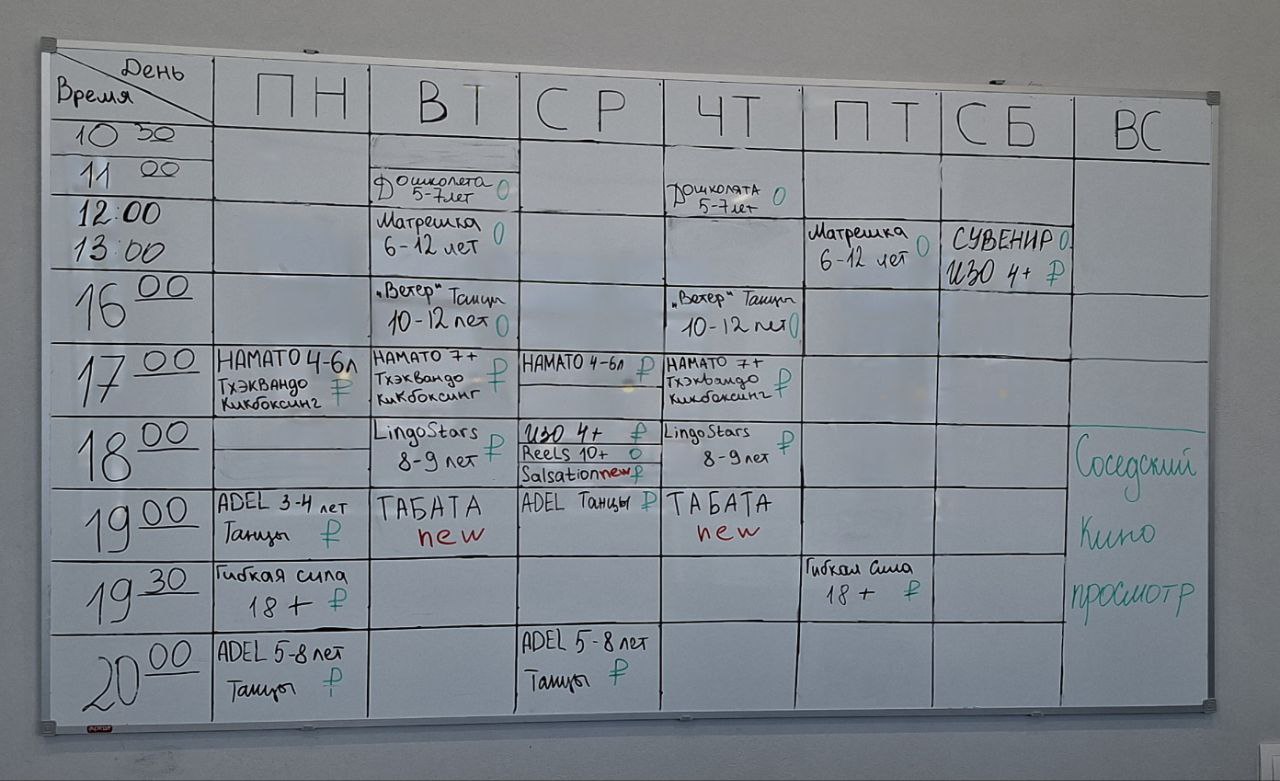 День
Время
ПН ВТ СР ЧТ ПТ СБ ВС
10 30
11 00
Дошколета
5-7лет 0
Дошколята
5-7лет 0
12:00
13:00
Матрешка
6-12 лет 0
Матрешка
6-12 лет 0
СУВЕНИР 0
ИЗО 4+ ₽
16 00
„Ветер" Танцы
10-12 лет 0
„Ветер" Танцы
10-12 лет 0
17 00
НАМАТО 4-6л
Тхэквандо ₽
Кикбоксинг
НАМАТО 7+
Тхэквандо ₽
Кикбоксинг
НАМАТО 4-6л ₽
НАМАТО 7+
Тхэквандо ₽
Кикбоксинг
18 00
LingoStars
8-9 лет ₽
ИЗО 4+ ₽
Reels 10+ 0
Salsation new ₽
LingoStars
8-9 лет ₽
19 00
ADEL 3-4 лет
Танцы ₽
ТАБАТА
new
ADEL Танцы ₽
ТАБАТА
new
19 30
Гибкая сила
18+ ₽
Гибкая сила
18+ ₽
20 00
ADEL 5-8 лет
Танцы ₽
ADEL 5-8 лет
Танцы ₽
Соседский
Кино
просмотр